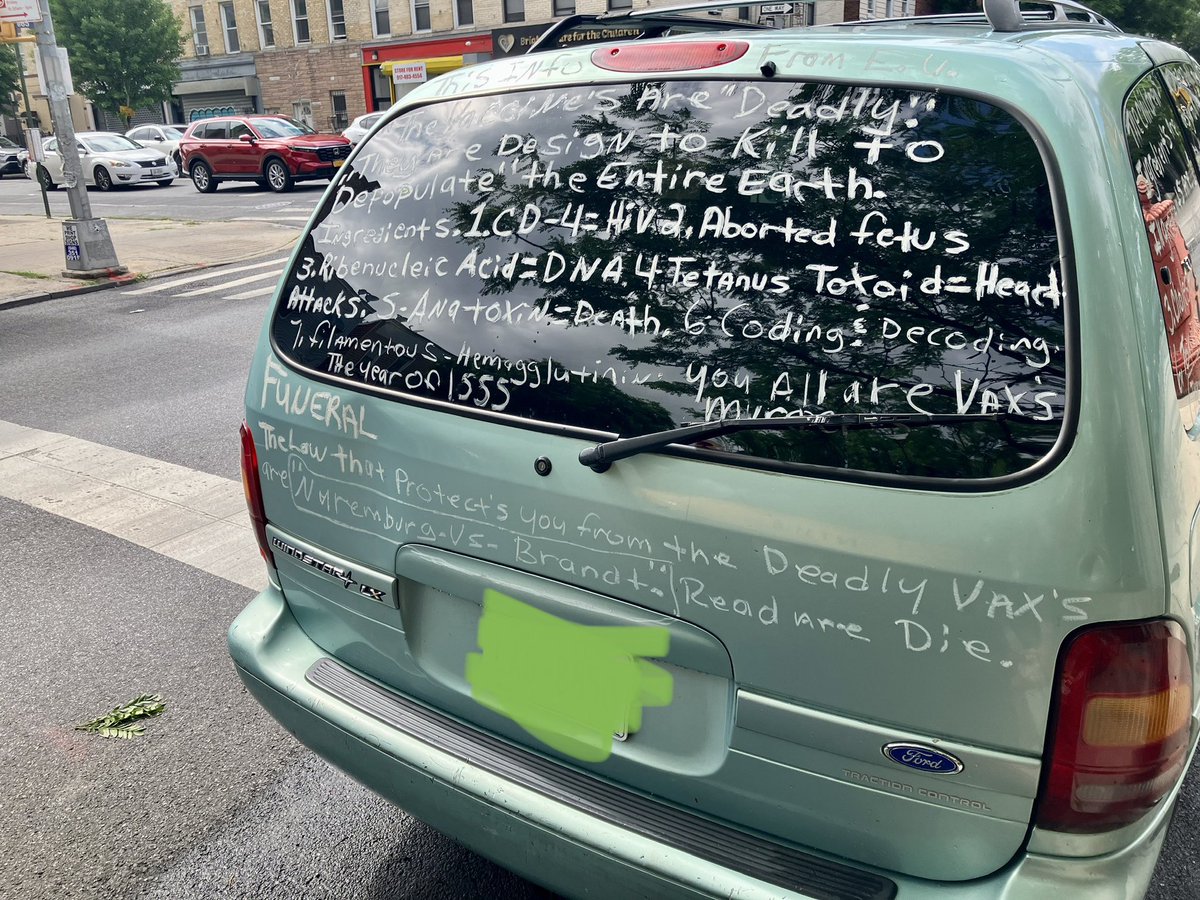 STORE FOR RENT
917-603-6556
for the Children
ONE WAY
This Info From F.U.
The Vaccine's Are "Deadly".
They are Design to Kill to
Depopulate" the Entire Earth.
Ingredients. 1. CD-4=HiV 2, Aborted fetus
3. Ribenucleic Acid=DNA. 4 Tetanus Toxoid=Heart
Attacks. 5-Anatoxin=Death. 6-Coding & Decoding.
7. filamentous-Hemagglutinin. You All are Vax's
The year of 1555
FUNERAL
The Law that Protect's you from the Deadly VAX's
are "Nuremburg-Vs-Brandt." Read are Die.
WINDSTAR LX
Ford
TRACTION CONTROL